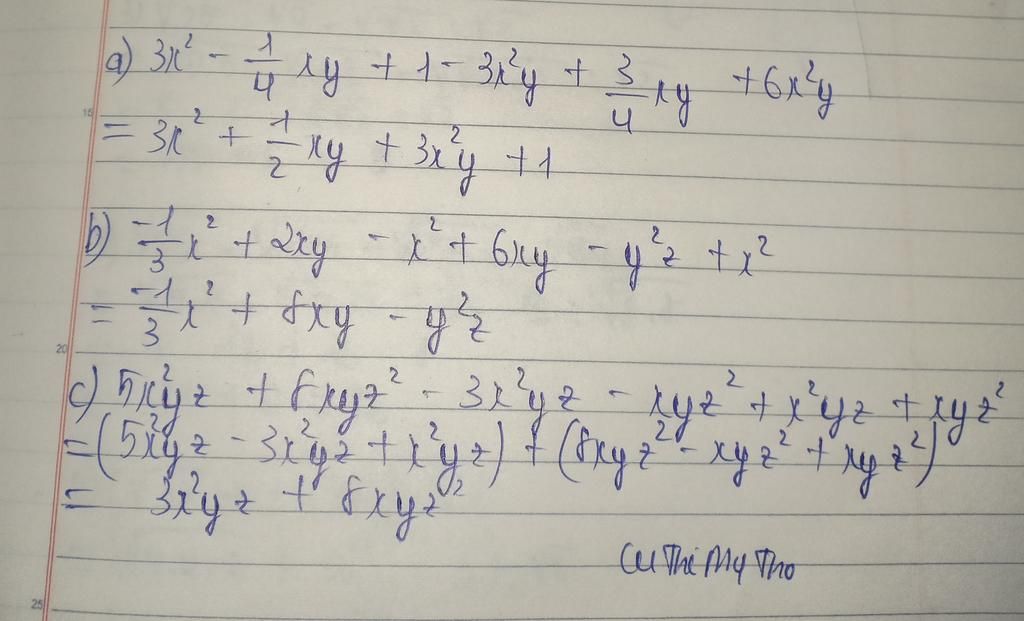 a) 3x² - 1/4 xy + 1 - 3x²y + 3/4 xy + 6x²y
= 3x² + 1/2 xy + 3x²y + 1
b) -1/3 x² + 2xy - x² + 6xy - y²z + x²
= -1/3 x² + 8xy - y²z
c) 5x²yz + 8xyz² - 3x²yz - xyz² + x²yz + xyz²
= (5x²yz - 3x²yz + x²yz) + (8xyz² - xyz² + xyz²)
= 3x²yz + 8xyz²
Cu Thi My Tho
15
20
25